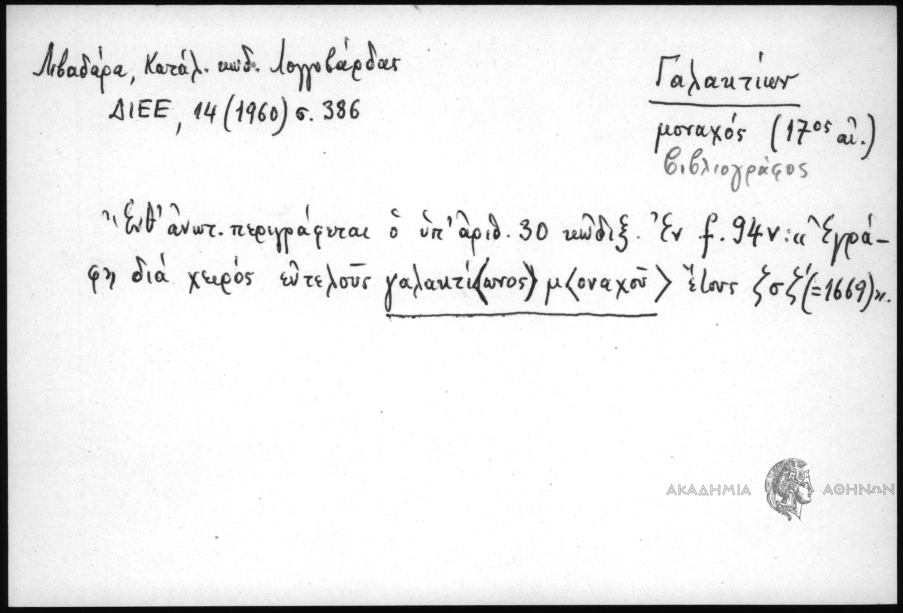 Λιβαδάρα, Κατάλ. κωδ. Λογγοβάρδας
ΔΙΕΕ, 14 (1960) σ. 386
Γαλακτίων
μοναχός (17ος αἰ.)
βιβλιογράφος
"Ἔνθ' ἀνωτ. περιγράφεται ὁ ὑπ' ἀριθ. 30 κῶδιξ. Ἐν f. 94v: "Ἐγρά-
φη διά χειρός εὐτελοῦς γαλακτί⟨ωνος⟩ μ⟨οναχοῦ⟩ ἔτους ζσζ' (=1669)".
ΑΚΑΔΗΜΙΑ ΑΘΗΝΩΝ